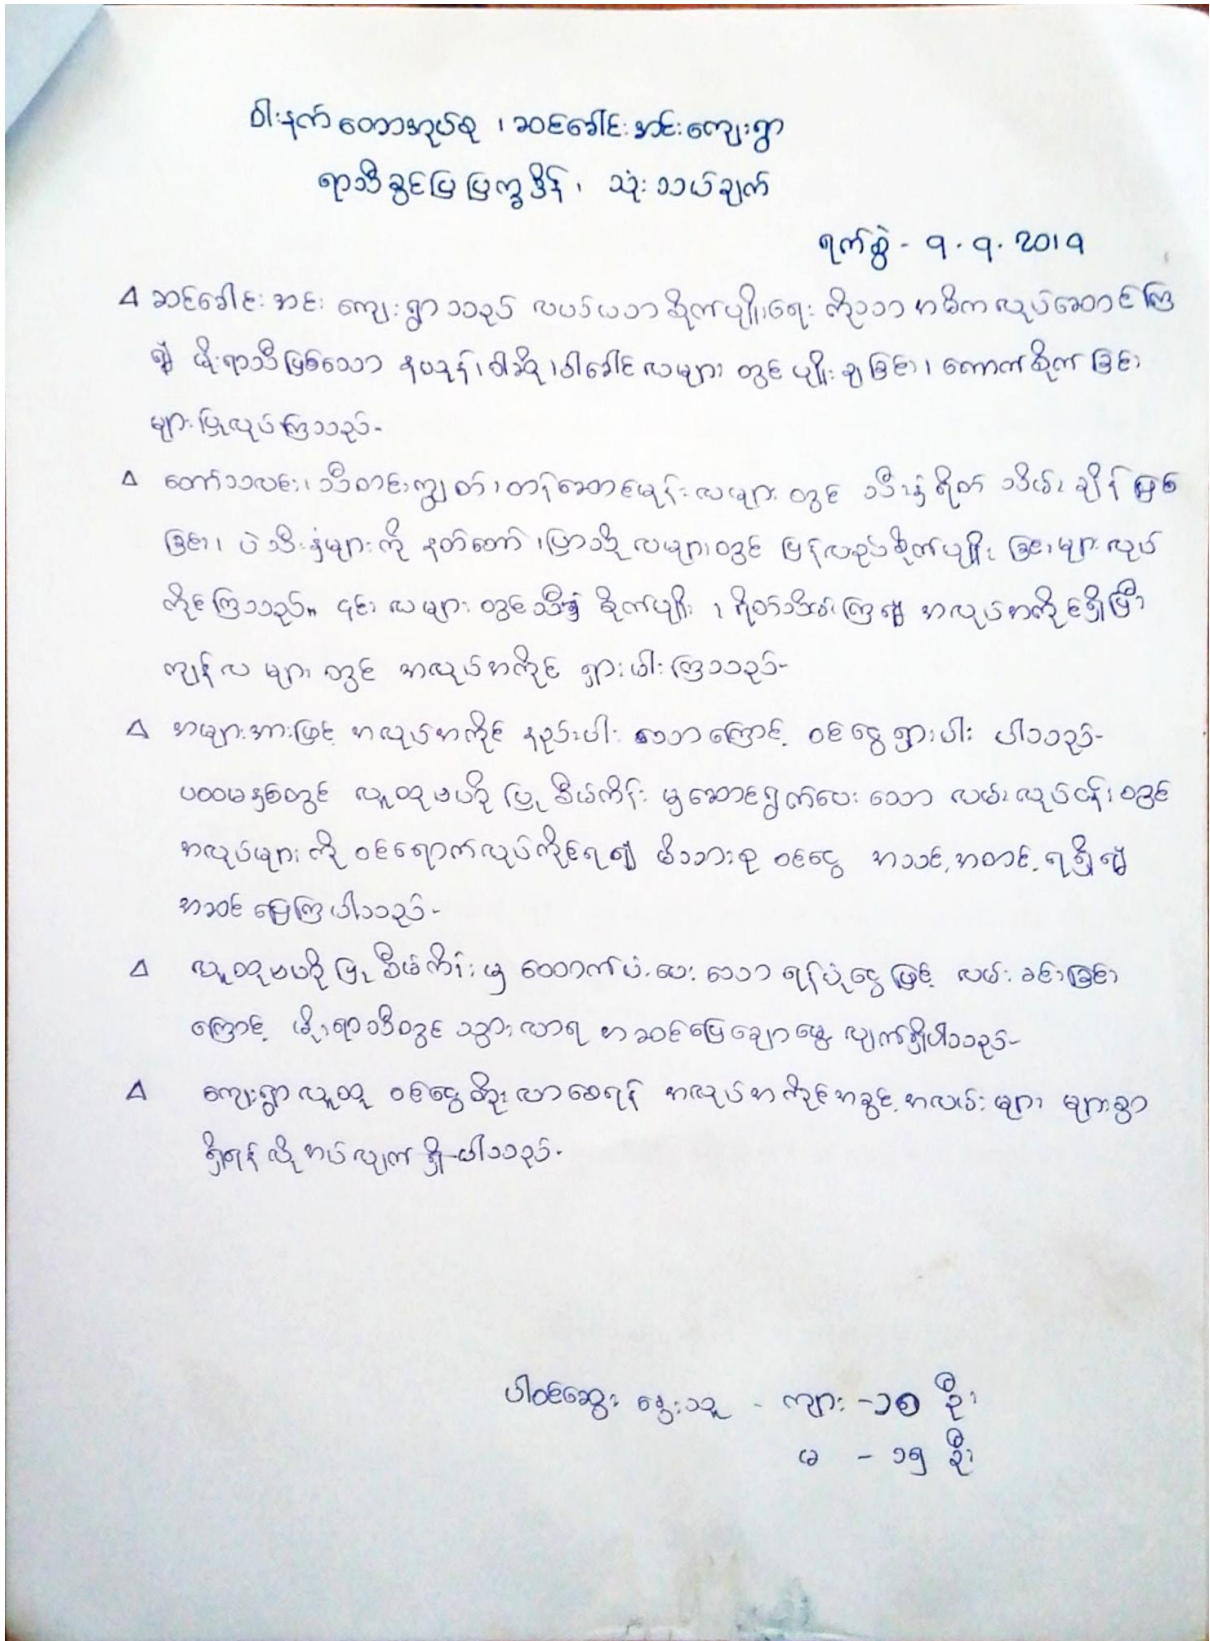 ဝါးနက်တောအုပ်စု ၊ ဆင်ခေါင်းအင်းကျေးရွာ
ရာသီခွင်ပြ ပြက္ခဒိန် ၊ သုံးသပ်ချက်
ရက်စွဲ - ၇.၇.2017
Δ ဆင်ခေါင်းအင်း ကျေးရွာသည် လယ်ယာစိုက်ပျိုးရေး ကိုသာ အဓိကလုပ်ဆောင်ကြ
၍ မိုးရာသီဖြစ်သော နယုန်၊ ဝါဆို၊ ဝါခေါင် လများ တွင် ပျိုးချခြင်း၊ ကောက်စိုက်ခြင်း
များပြုလုပ်ကြသည်-
Δ တော်သလင်း၊ သီတင်းကျွတ်၊ တန်ဆောင်မုန်း လများ တွင် သီးနှံရိတ်သိမ်းချိန်ဖြစ်
ခြင်း၊ ပဲသီးနှံများကို နတ်တော်၊ ပြာသို လများတွင် ပြန်လည်စိုက်ပျိုးခြင်းများလုပ်
ကိုင်ကြသည်။ ၎င်း လများ တွင်သီးနှံ စိုက်ပျိုး ၊ ရိတ်သိမ်းကြ၍ အလုပ်အကိုင်ရှိပြီး
ကျန်လ များ တွင် အလုပ်အကိုင် ရှားပါးကြသည်-
Δ အများအားဖြင့် အလုပ်အကိုင် နည်းပါးသောကြောင့် ဝင်ငွေရှားပါး ပါသည်-
ပထမနှစ်တွင် လူထုဗဟိုပြုစီမံကိန်း မှဆောင်ရွက်ပေးသော လမ်းလုပ်ငန်းတွင်
အလုပ်များကို ဝင်ရောက်လုပ်ကိုင်ရ၍ မိသားစု ဝင်ငွေ အသင့်အတင့်ရရှိ၍
အဆင်ပြေကြပါသည်-
Δ လူထုဗဟိုပြုစီမံကိန်းမှ ထောက်ပံ့ပေးသော ရန်ပုံငွေဖြင့် လမ်းခင်းခြင်း
ကြောင့် မိုးရာသီတွင် သွားလာရ အဆင်ပြေချောမွေ့ လျက်ရှိပါသည်-
Δ ကျေးရွာလူထု ဝင်ငွေတိုးလာစေရန် အလုပ်အကိုင်အခွင့်အလမ်းများ များစွာ
ရှိရန်လိုအပ်လျက်ရှိပါသည်-
ပါဝင်ဆွေးနွေးသူ - ကျား - ၁၈ ဦး
မ - ၁၅ ဦး